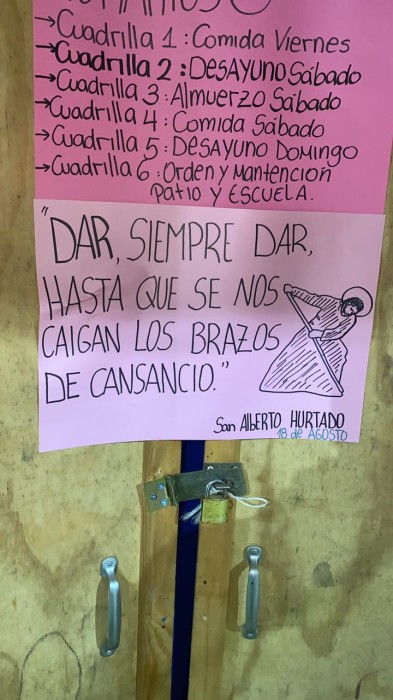 →Cuadrilla 1 : Comida Viernes
→Cuadrilla 2 : Desayuno Sábado
→Cuadrilla 3 : Almuerzo Sábado
→Cuadrilla 4 : Comida Sábado
→Cuadrilla 5 : Desayuno Domingo
→Cuadrilla 6 : Orden y Mantención
Patio y Escuela.
"DAR, SIEMPRE DAR,
HASTA QUE SE NOS
CAIGAN LOS BRAZOS
DE CANSANCIO."
San ALBERTO HURTADO
18 de AGOSTO